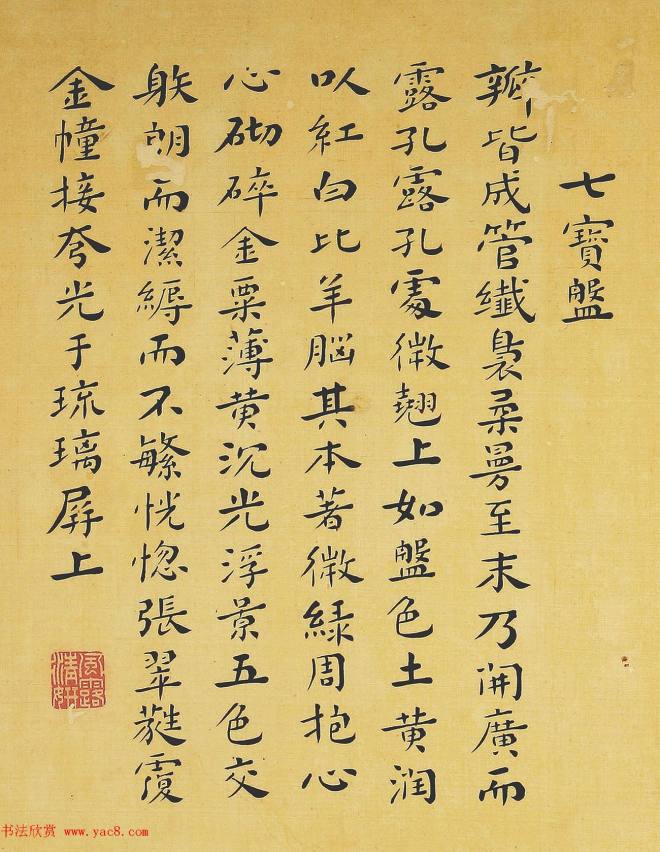 七寶盤
瓣皆成管纖裊柔曼至末乃開廣而
露孔露孔處微翹上如盤色土黄润
以紅白比羊脳其本著微緑周抱心
心砌碎金粟薄黄沉光浮景五色交
䠶朗而潔縟而不繁恍惚張翠蕤覆
金幢接夸光于琉璃屏上
風露清妍
书法欣赏 www.yac8.com